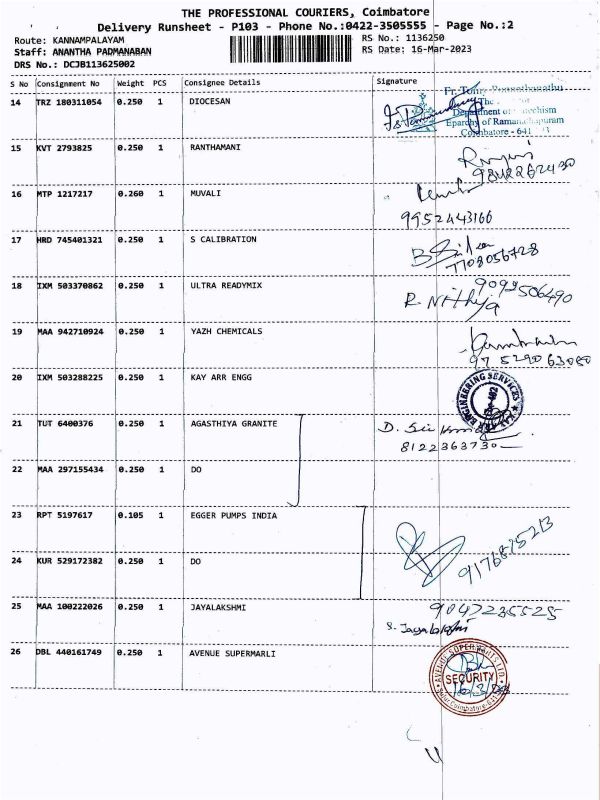 THE PROFESSIONAL COURIERS, Coimbatore
Delivery Runsheet - P103 - Phone No.:0422-3505555 - Page No.:2
Route: KANNAMPALAYAM RS No.: 1136250
Staff: ANANTHA PADMANABAN RS Date: 16-Mar-2023
DRS No.: DCJB113625002
S No Consignment No Weight PCS Consignee Details Signature
14 TRZ 180311054 0.250 1 DIOCESAN
Fr. Tomy
Department of Catechism
Eparchy of Ramanathapuram
Coimbatore - 641
15 KVT 2793825 0.250 1 RANTHAMANI
16 MTP 1217217 0.260 1 MUVALI
9952443166
17 HRD 745401321 0.250 1 S CALIBRATION
7708056728
18 IXM 503370862 0.250 1 ULTRA READYMIX
R. Nithya
19 MAA 942710924 0.250 1 YAZH CHEMICALS
20 IXM 503288225 0.250 1 KAY ARR ENGG
ENGINEERING SERVICES
21 TUT 6400376 0.250 1 AGASTHIYA GRANITE
8122363730
22 MAA 297155434 0.250 1 DO
23 RPT 5197617 0.105 1 EGGER PUMPS INDIA
24 KUR 529172382 0.250 1 DO
25 MAA 100222026 0.250 1 JAYALAKSHMI 9047235525
S. Jayalakshmi
26 DBL 440161749 0.250 1 AVENUE SUPERMARLI
AVENUE SUPERMARTS LTD.
SECURITY